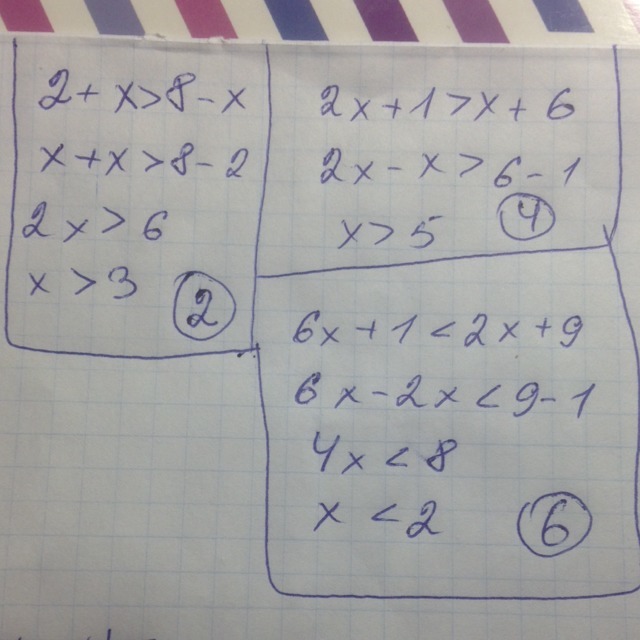 2+x>8-x
x+x>8-2
2x>6
x>3
2
2x+1>x+6
2x-x>6-1
x>5
4
6x+1<2x+9
6x-2x<9-1
4x<8
x<2
6